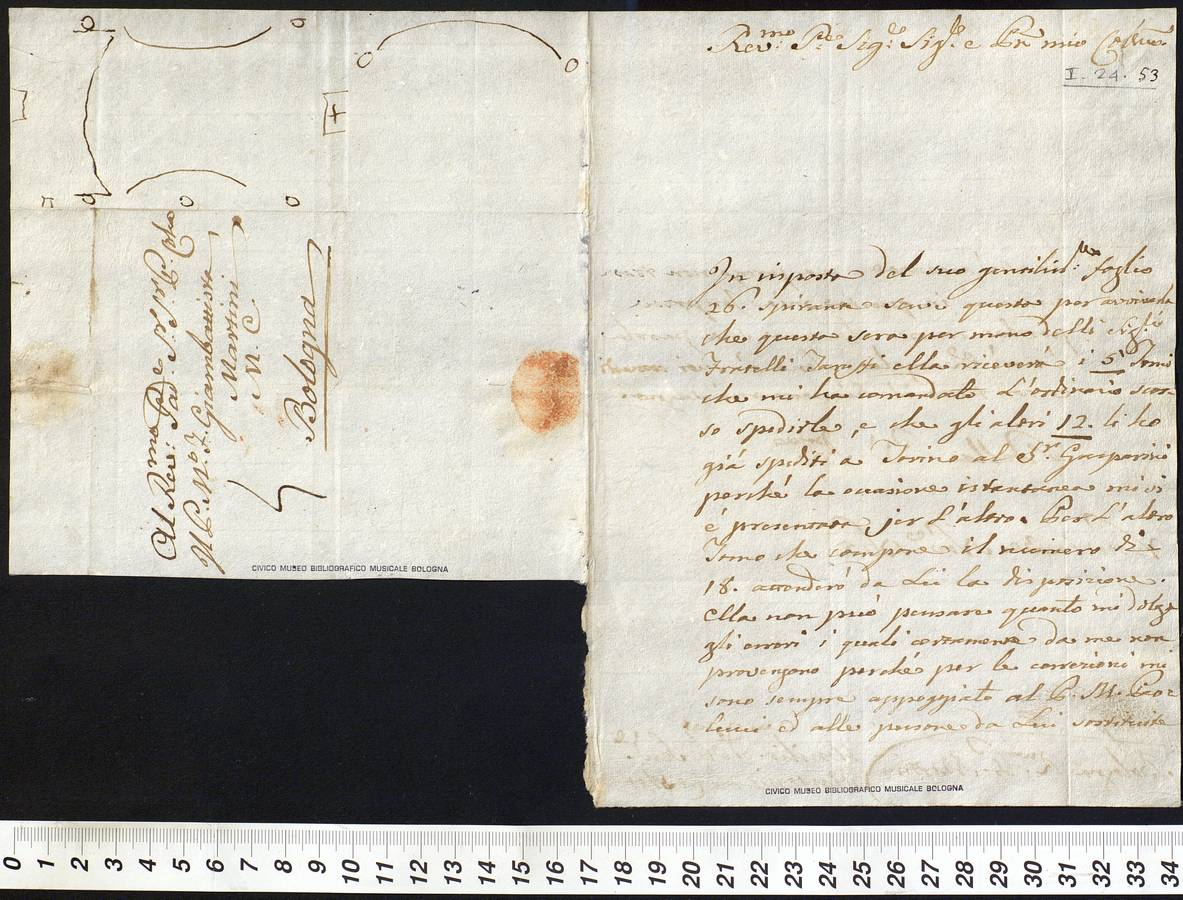 Al Rev.mo Pad.e Sr. Sr. P.
Il P. M.o F. Giambattista
Martini
M. C.
Bologna
CIVICO MUSEO BIBLIOGRAFICO MUSICALE BOLOGNA
Rev.mo P.re Sig.e Sig.e e P.rn mio
I. 24. 53
In risposta del suo gentiliss.mo foglio
26. spirante servi questa per avvisarla
che questa sera per mano delli Sig.ri
Fratelli Taruffi ella riceverà i 5 Tomi
che mi ha comandato l'ordinario scor-
so spedirle, e che gli altri 12. li ho
già spediti a Torino al S.r Gasparini
perché la occasione istantanea mi si
è presentata jer l'altro. Per l'altro
Tomo che compone il numero di
18. attenderò da Lei la disposizione.
Ella non può pensare quanto mi dolga
gli errori i quali certamente da me non
provengono perché per le correzioni mi
sono sempre appoggiato al P. M. Pao-
lucci ed alle persone da Lui sostituite
CIVICO MUSEO BIBLIOGRAFICO MUSICALE BOLOGNA
0 1 2 3 4 5 6 7 8 9 10 11 12 13 14 15 16 17 18 19 20 21 22 23 24 25 26 27 28 29 30 31 32 33 34